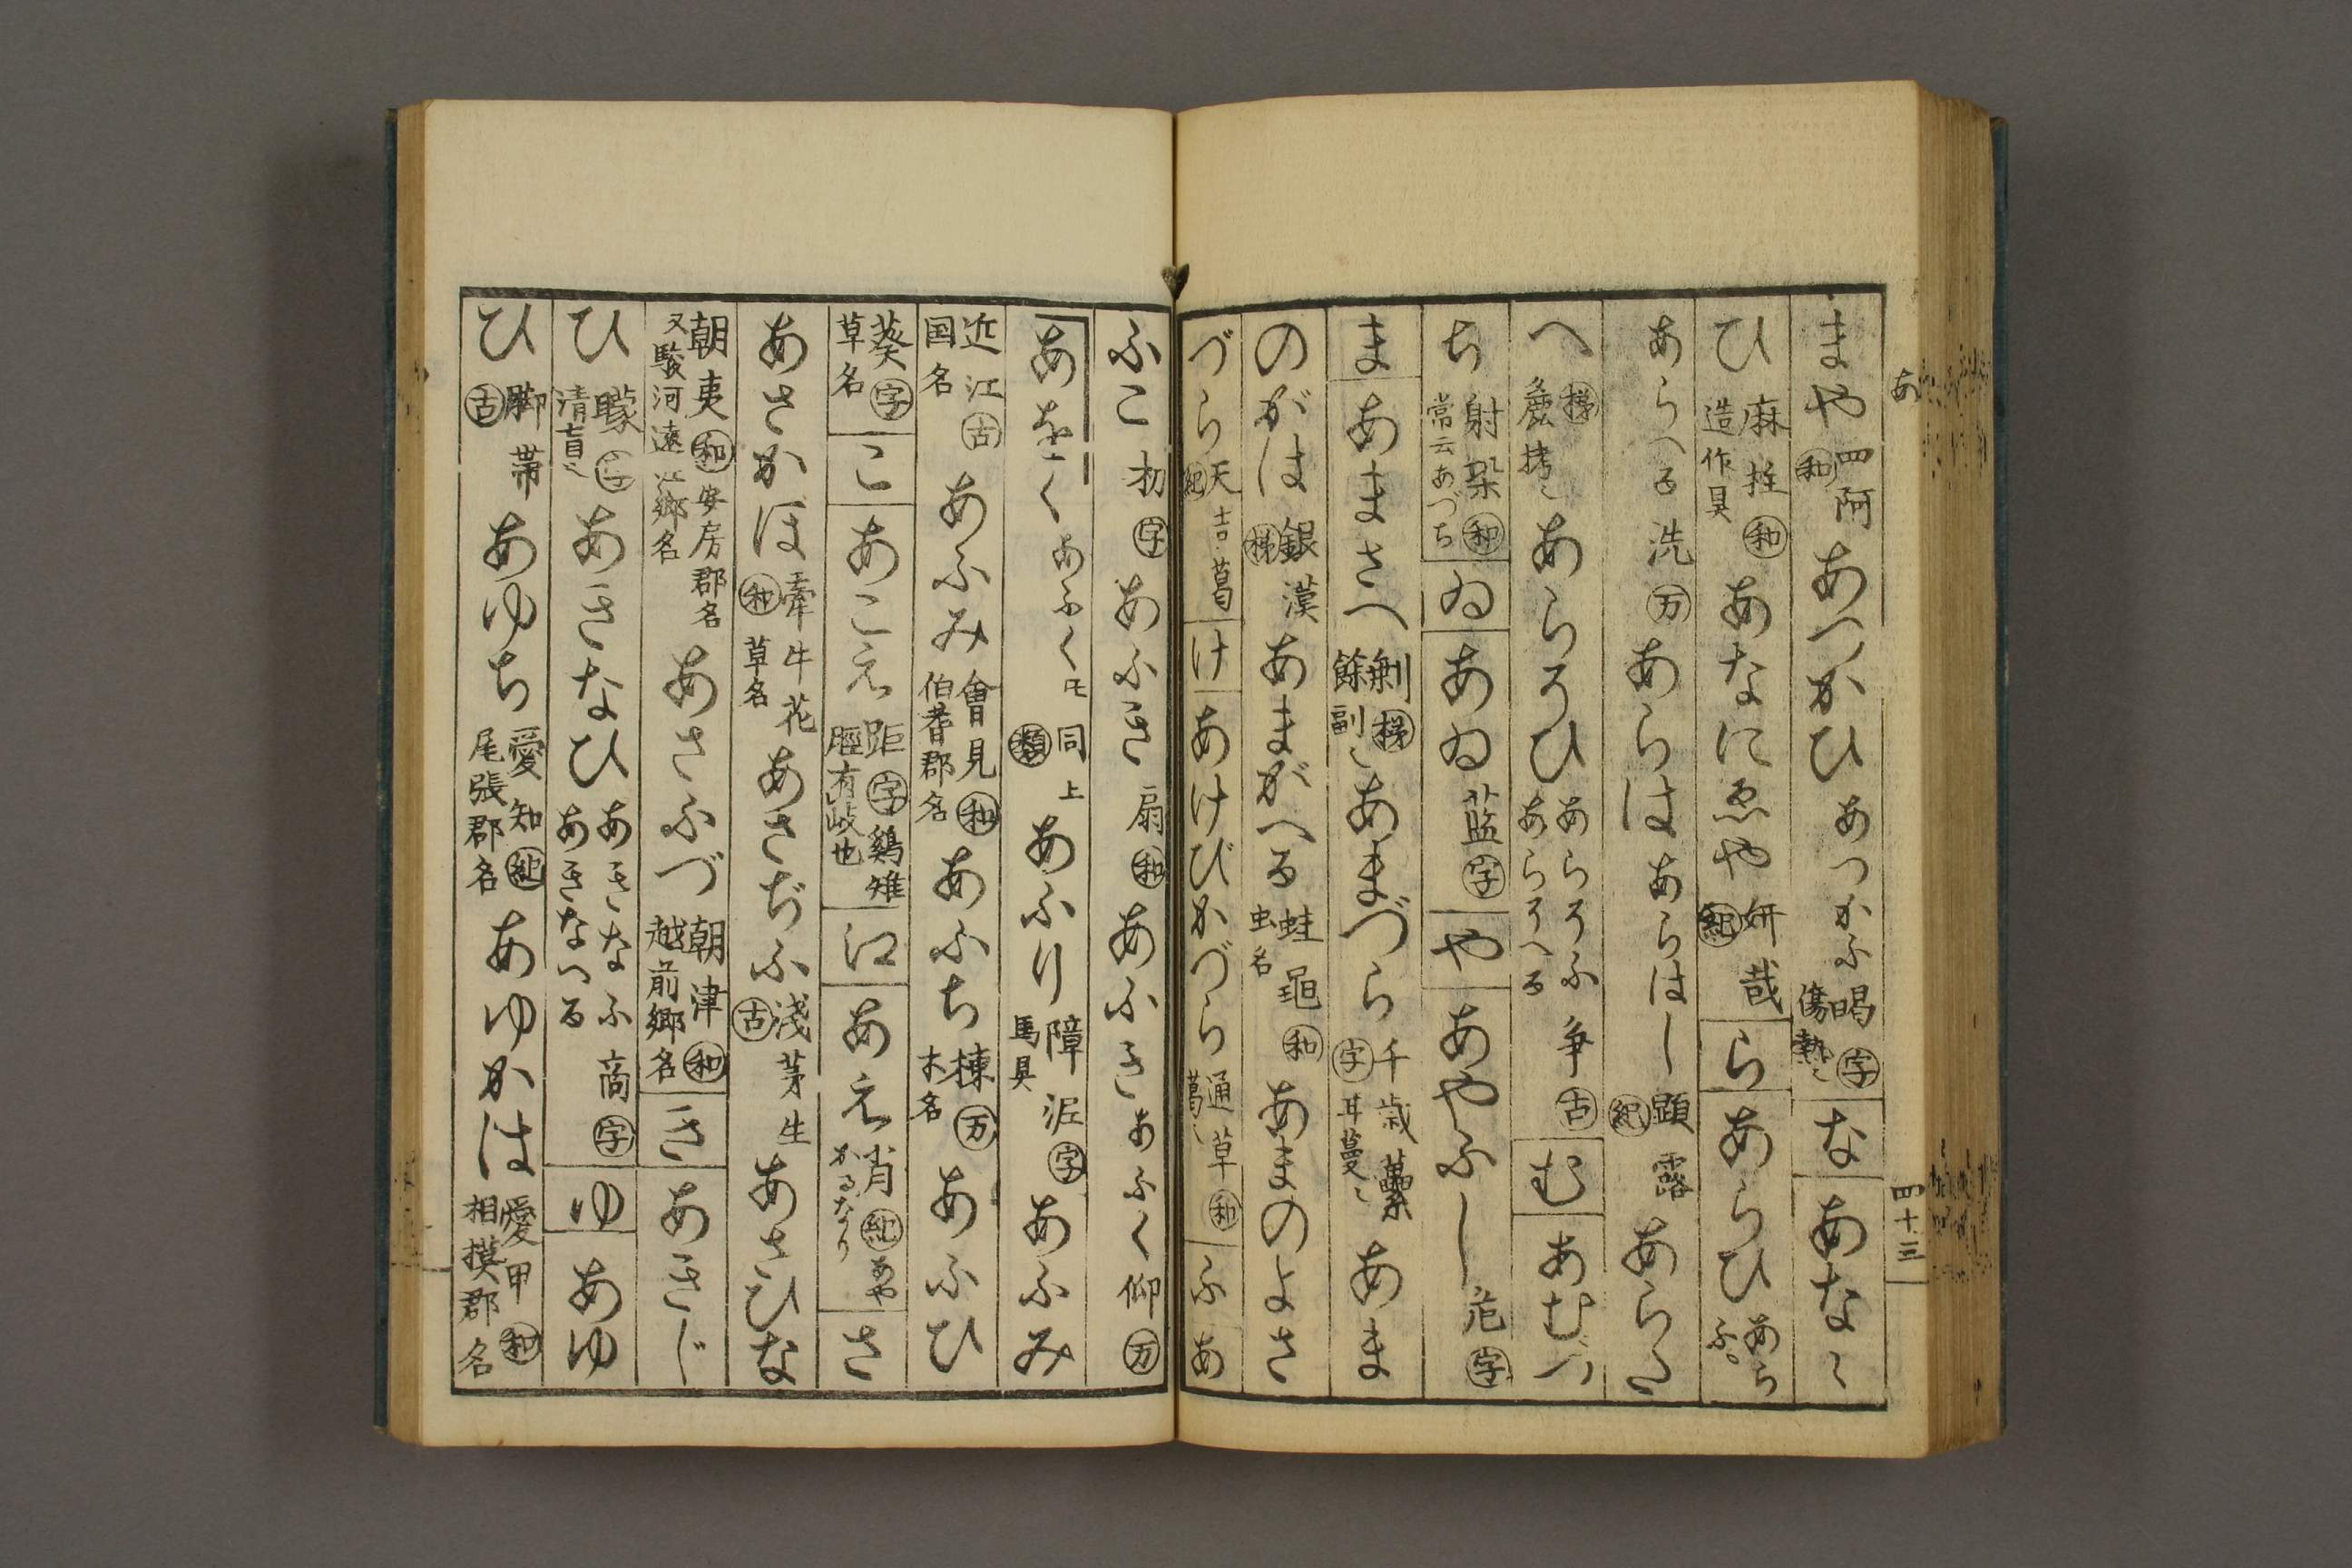 あ
四十三
まや 四阿 和 あつかひ あつかふ 暍 字 傷熱〻 な あなゝ
ひ 麻柱 和 造作具 あなにゑや 妍哉 紀 ら あらひ あらふ
あらへる 洗 万 あらは あらはし 顕露 紀 あらた
へ 梯 麁拷〻 あらそひ あらそふ あらそへる 争 古 む あむつ
ち 射垜 和 常云あづち ゐ あゐ 藍 字 や あやふし 危 字
ま あまさへ 剰 梯 餘副〻 あまづら 千歳虆 字 甘蔓〻 あま
のがは 銀漢 梯 あまがへる 蛙黽 和 虫名 あまのよさ
づら 天吉葛 紀 け あけびかづら 通草 和 葛〻 ふ あ
ふこ 朸 字 あふき 扇 和 あふき あふく 仰 万
あをく あふく 同上 類 あふり 障泥 字 馬具 あふみ
近江 古 国名 あふみ 會見 和 伯耆郡名 あふち 楝 万 木名 あふひ
葵 字 草名 こ あこえ 距 字 鷄雉脛有岐也 え あえ 肖 紀 あやかるなり さ
あさかほ 牽牛花 和 草名 あさぢふ 淺茅生 古 あさひな
朝夷 和 安房郡名 又駿河遠江郷名 あさふづ 朝津 和 越前郷名 き あきじ
ひ 矇 字 清盲〻 あきなひ あきなふ あきなへる 商 字 ゆ あゆ
ひ 脚帯 古 あゆち 愛知 紀 尾張郡名 あゆかは 愛甲 和 相摸郡名